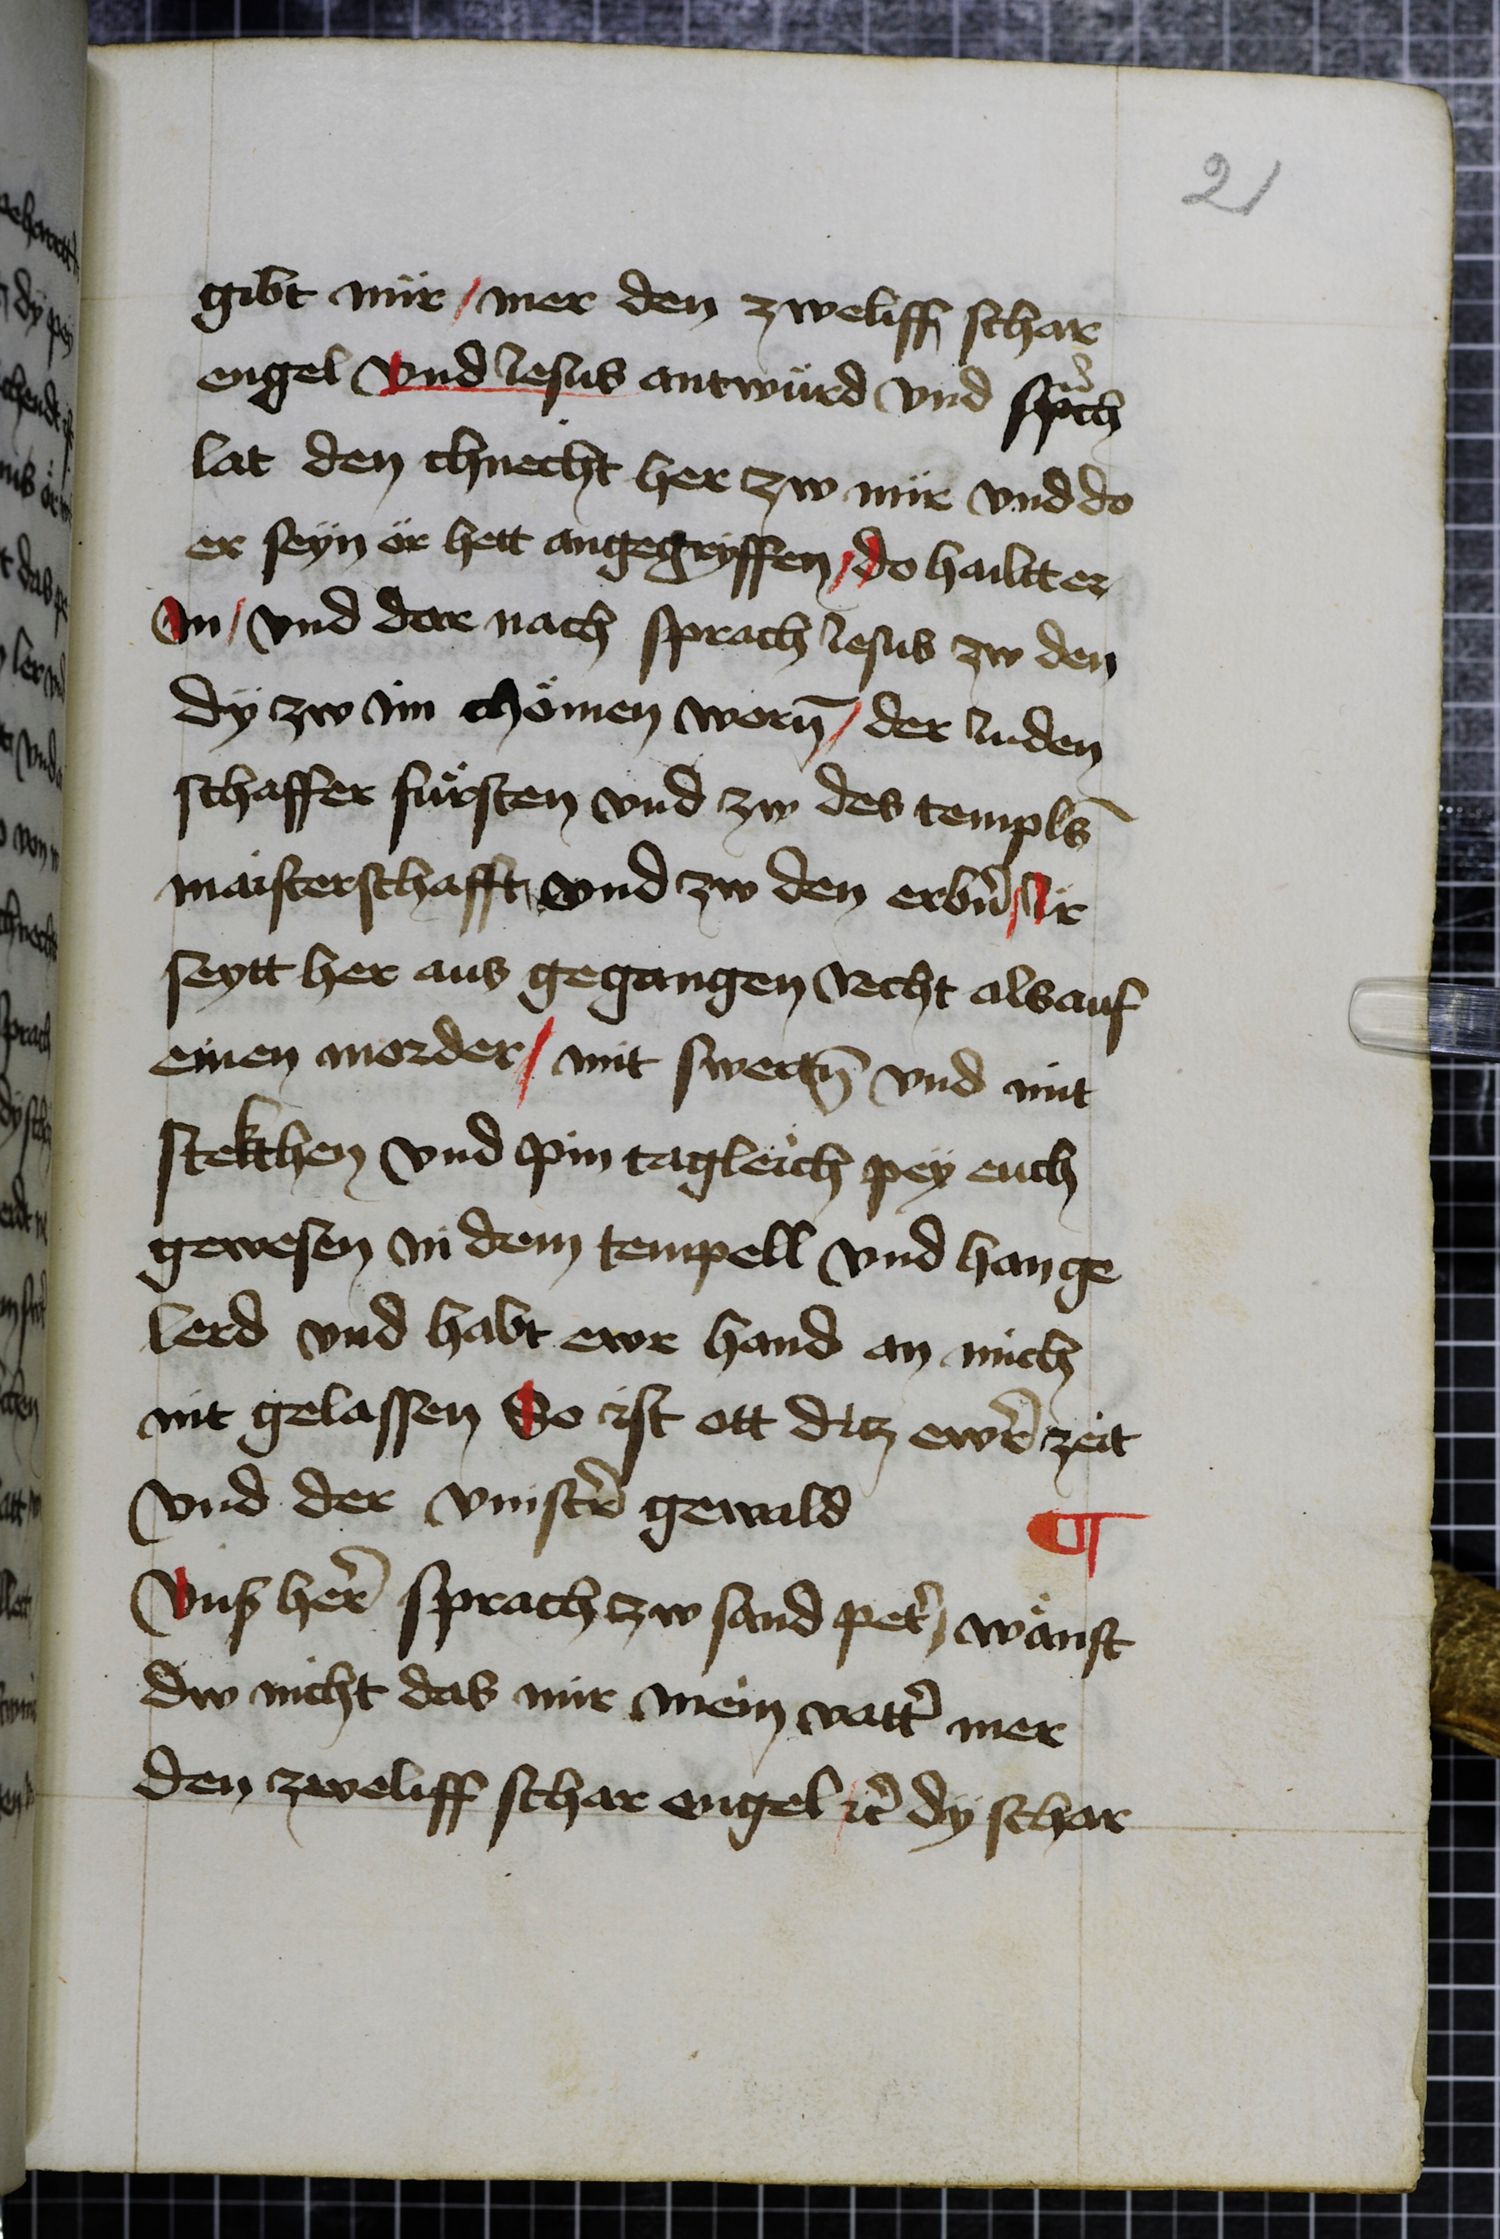 21
gibt mïr / mer den zweliff schar
engel Vnd Iesus antwürd vnd sprͣch
lat den chnecht her zw mïr vnd do
er seÿn ör hett angegryffen / do hailtt er
In / vnd dar nach sprach Iesus zw den
dÿ zw im chömen worn̄ / der Iuden
schaffer fürsten vnd zw des templs
maisterschafft vnd zw den erbn̄ / Ir
seytt her aus gegangen Recht als auf
einen morder / mit swertn̄ vnd mit
stekchen vnd pin tagleich pey euch
gewesen in dem tempell vnd han ge
lerd vnd habt ewr hand an mich
nit gelassen So ist ott ditz ewr̄ zeit
vnd der vinstr̄ gewald ¶
Vnß her̄ sprach zw sand pet̄ / wänst
dw nicht das mir mein vatt̄ mer
den zweliff schar engel / it̄ dÿ schar